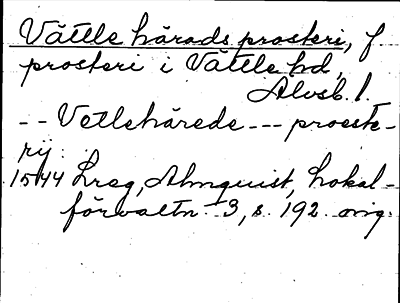 Vättle härads prosteri, f
prosteri i Vättle hd,
Älvsb. l.
-- Vetlehärede --- proeste-
rij:
1544 Lreg, Almquist, Lokal-
förvaltn 3, s. 192 orig.